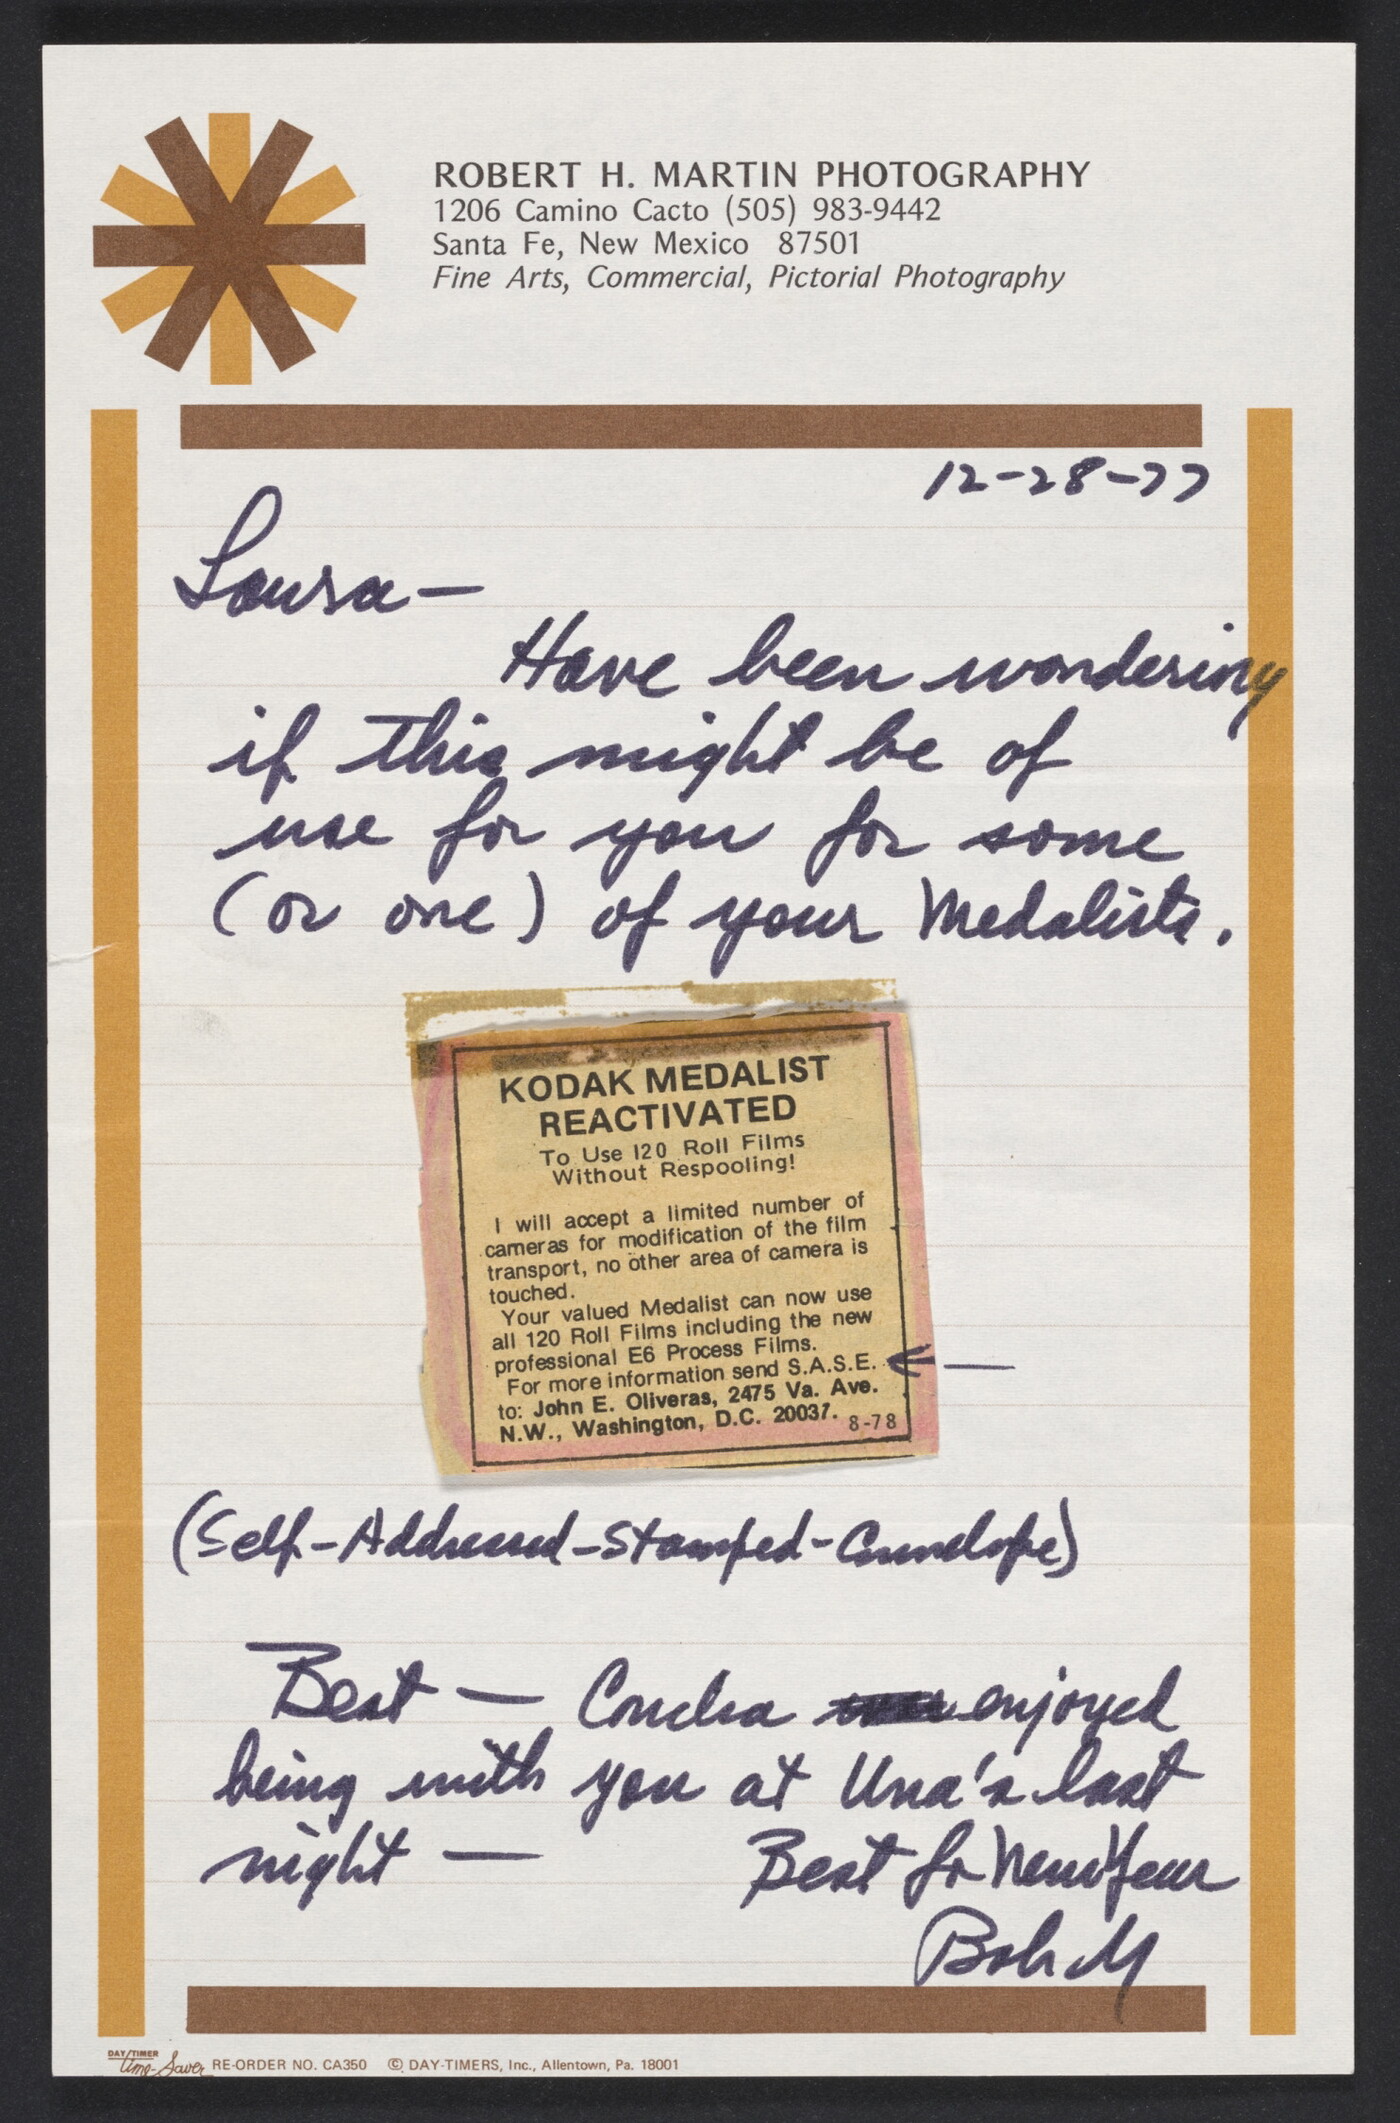 ROBERT H. MARTIN PHOTOGRAPHY
1206 Camino Cacto (505) 983-9442
Santa Fe, New Mexico 87501
Fine Arts, Commercial, Pictorial Photography
12-28-77
Laura—
Have been wondering
if this might be of
use for you for some
(or one) of your Medalists.
KODAK MEDALIST
REACTIVATED
To Use 120 Roll Films
Without Respooling!
I will accept a limited number of
cameras for modification of the film
transport, no other area of camera is
touched.
Your valued Medalist can now use
all 120 Roll Films including the new
professional E6 Process Films.
For more information send S.A.S.E.
to: John E. Oliveras, 2475 Va. Ave.
N.W., Washington, D.C. 20037.
8-78
(Self-Addressed-Stamped-Envelope)
Best — Concha enjoyed
being with you at Una's last
night —
Best for New Year
Bob M
DAY/TIMER
Time-Saver RE-ORDER NO. CA350 © DAY-TIMERS, Inc., Allentown, Pa. 18001